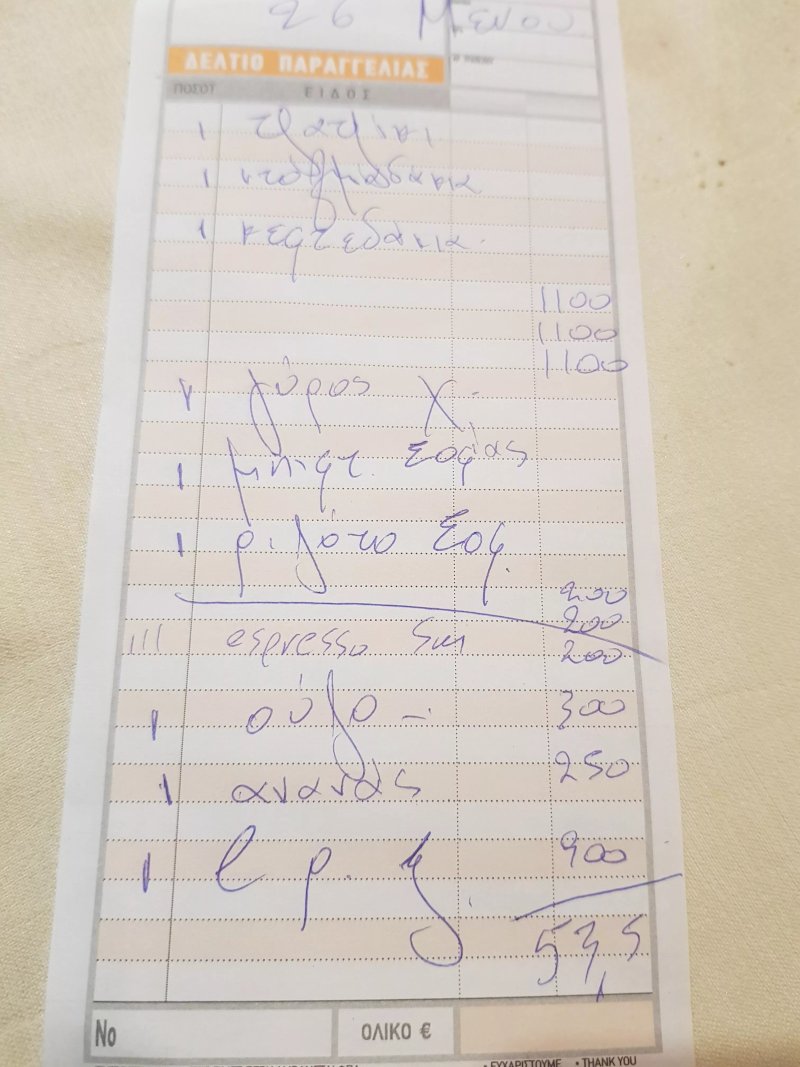 26 Μενού
ΔΕΛΤΙΟ ΠΑΡΑΓΓΕΛΙΑΣ
ΠΟΣΟΤ ΕΙΔΟΣ
1
1 ντολμαδάκια
1 κεφτεδάκια
1100
1100
1100
γύρος χ.
1 μπιφτ. Σοφίας
1 ριζότο Σοφ.
200
200
200
III espresso
1 ούζο - 300
1 ανανάς 250
1 l ρ. 900
53,5
Νο ΟΛΙΚΟ €
• ΕΥΧΑΡΙΣΤΟΥΜΕ • THANK YOU